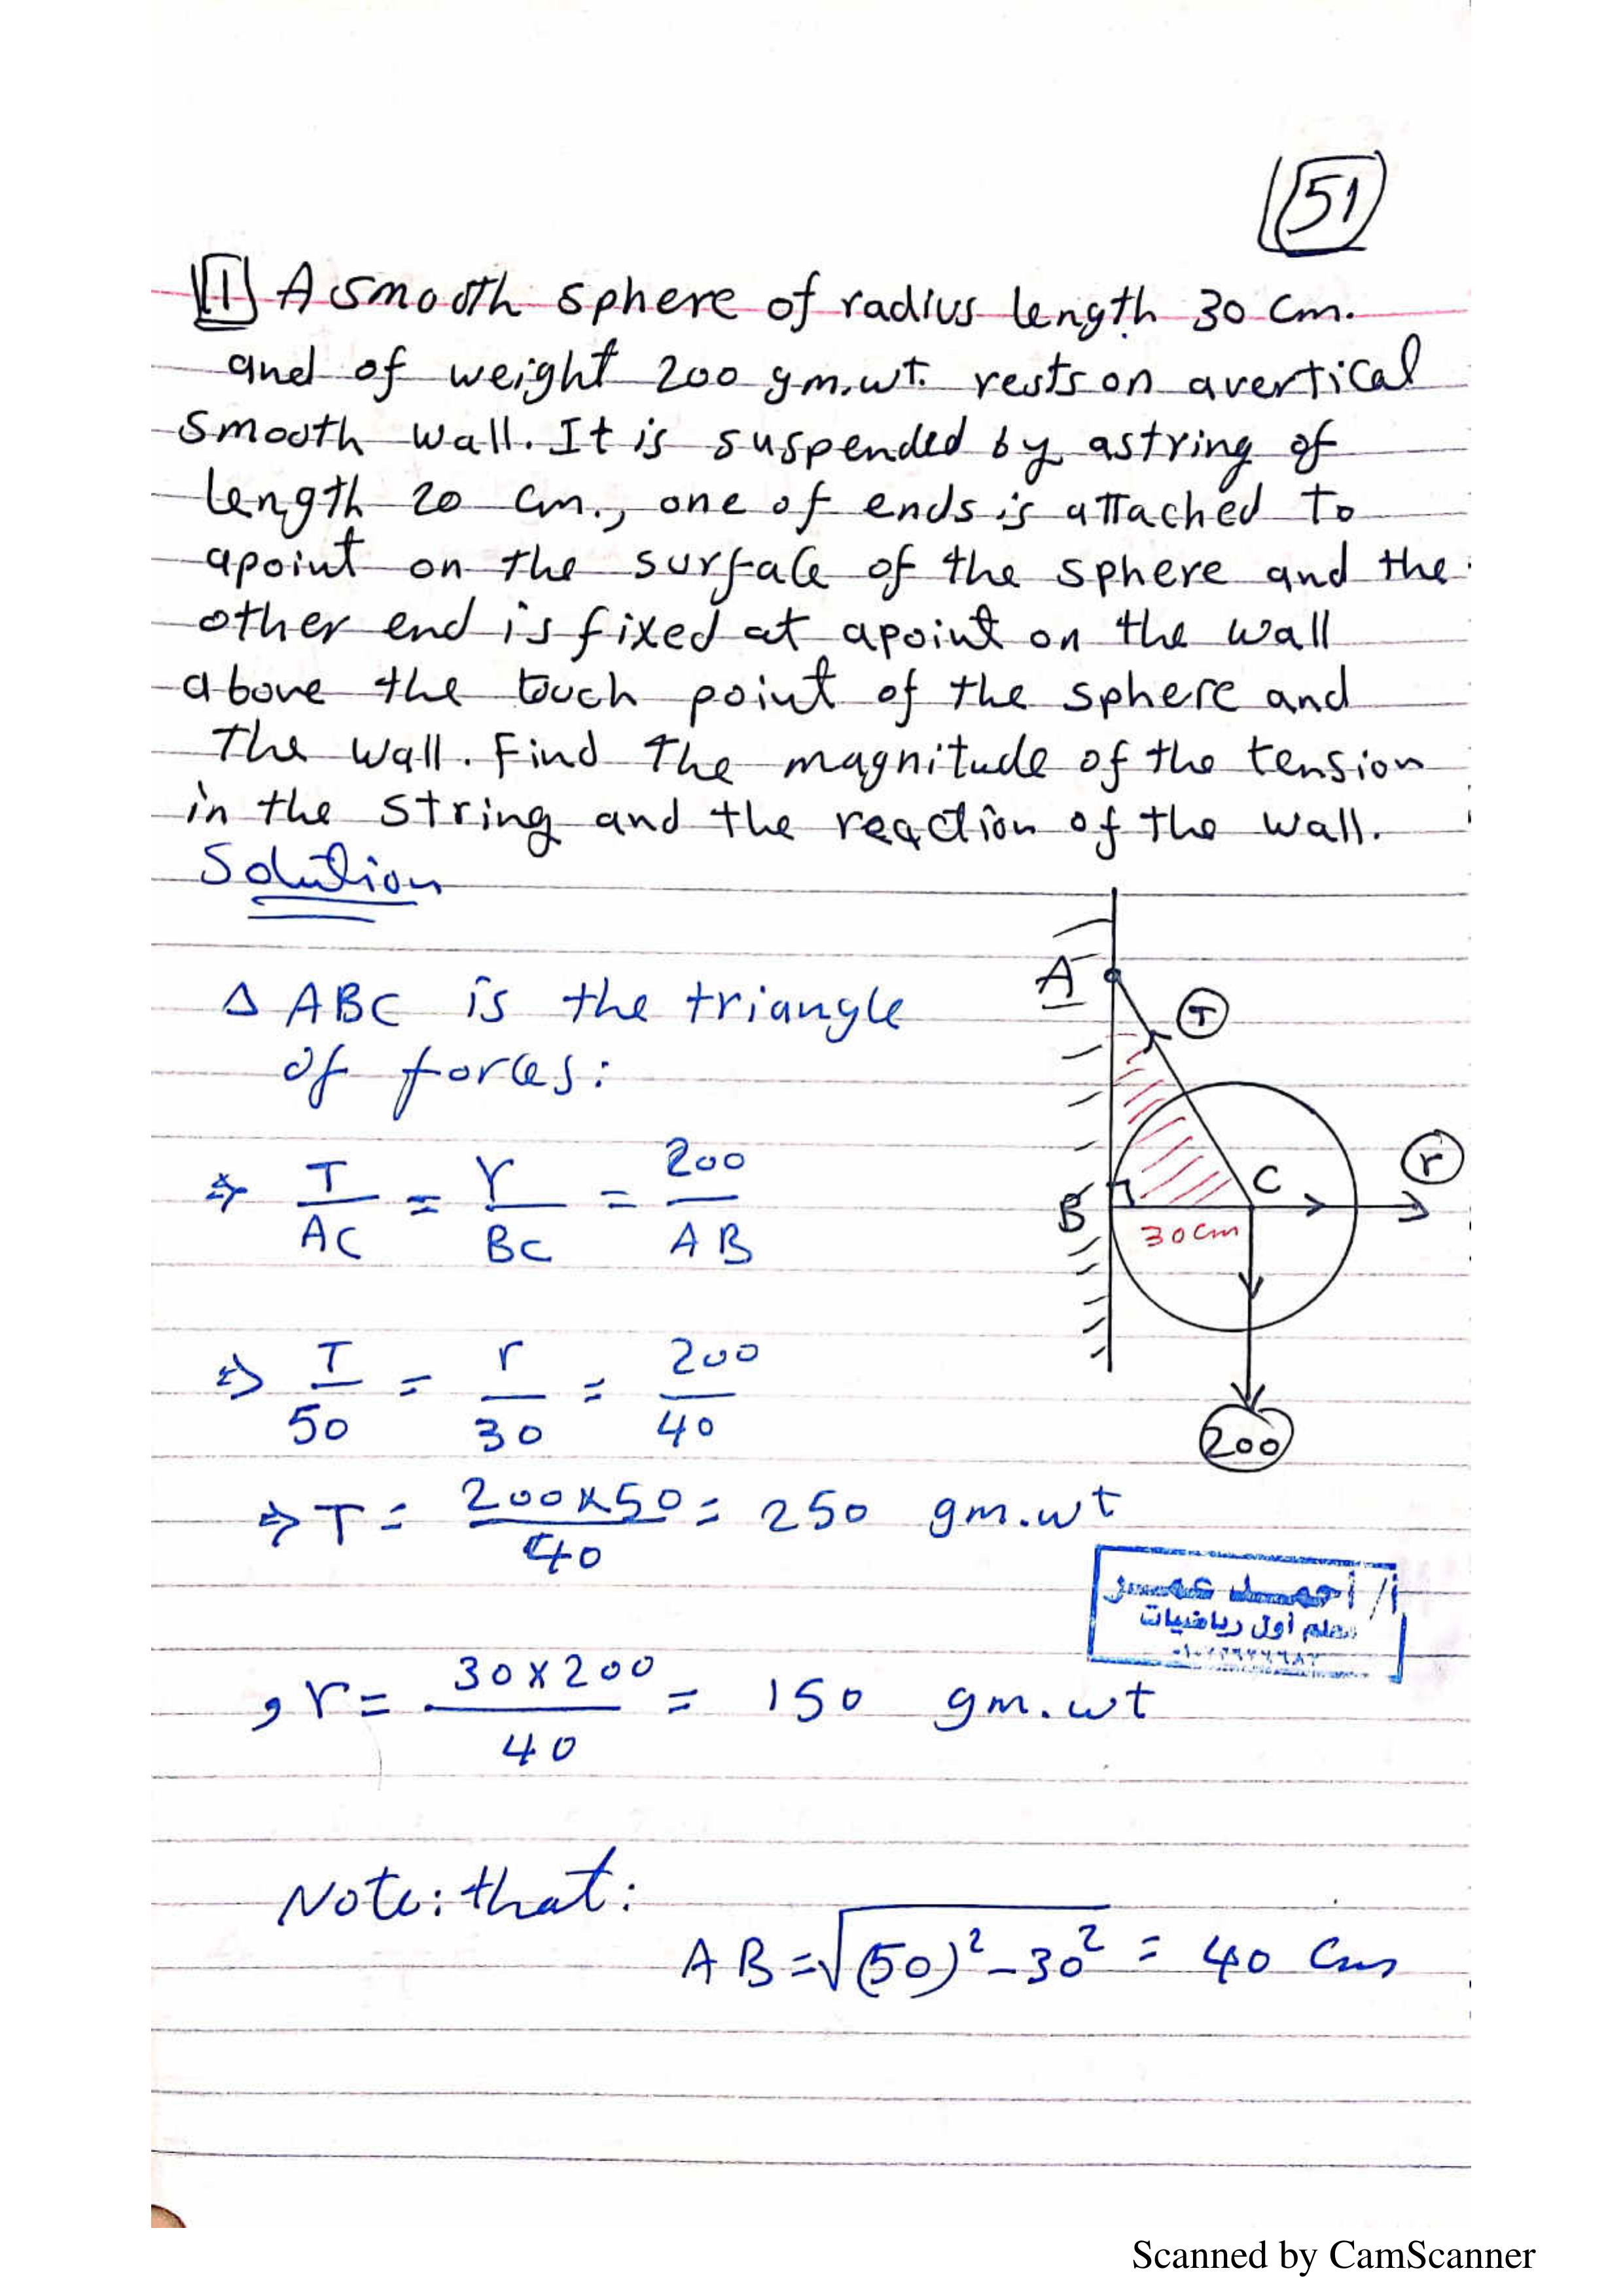 51
1 A smooth sphere of radius length 30 cm.
and of weight 200 gm.wt. rests on avertical
smooth wall. It is suspended by astring of
length 20 cm., one of ends is attached to
apoint on the surface of the sphere and the
other end is fixed at apoint on the wall
above the touch point of the sphere and
the wall. Find the magnitude of the tension
in the string and the reaction of the wall.
Solution
Δ ABC is the triangle
of forces:
A
T
B
C
r
30 cm
200
⇒ T/AC = r/BC = 200/AB
⇒ T/50 = r/30 = 200/40
⇒ T = 200×50/40 = 250 gm.wt
أ/ أحمد عمر
معلم أول رياضيات
, r = 30×200/40 = 150 gm.wt
Note: that:
AB = √(50)² - 30² = 40 Cm
Scanned by CamScanner